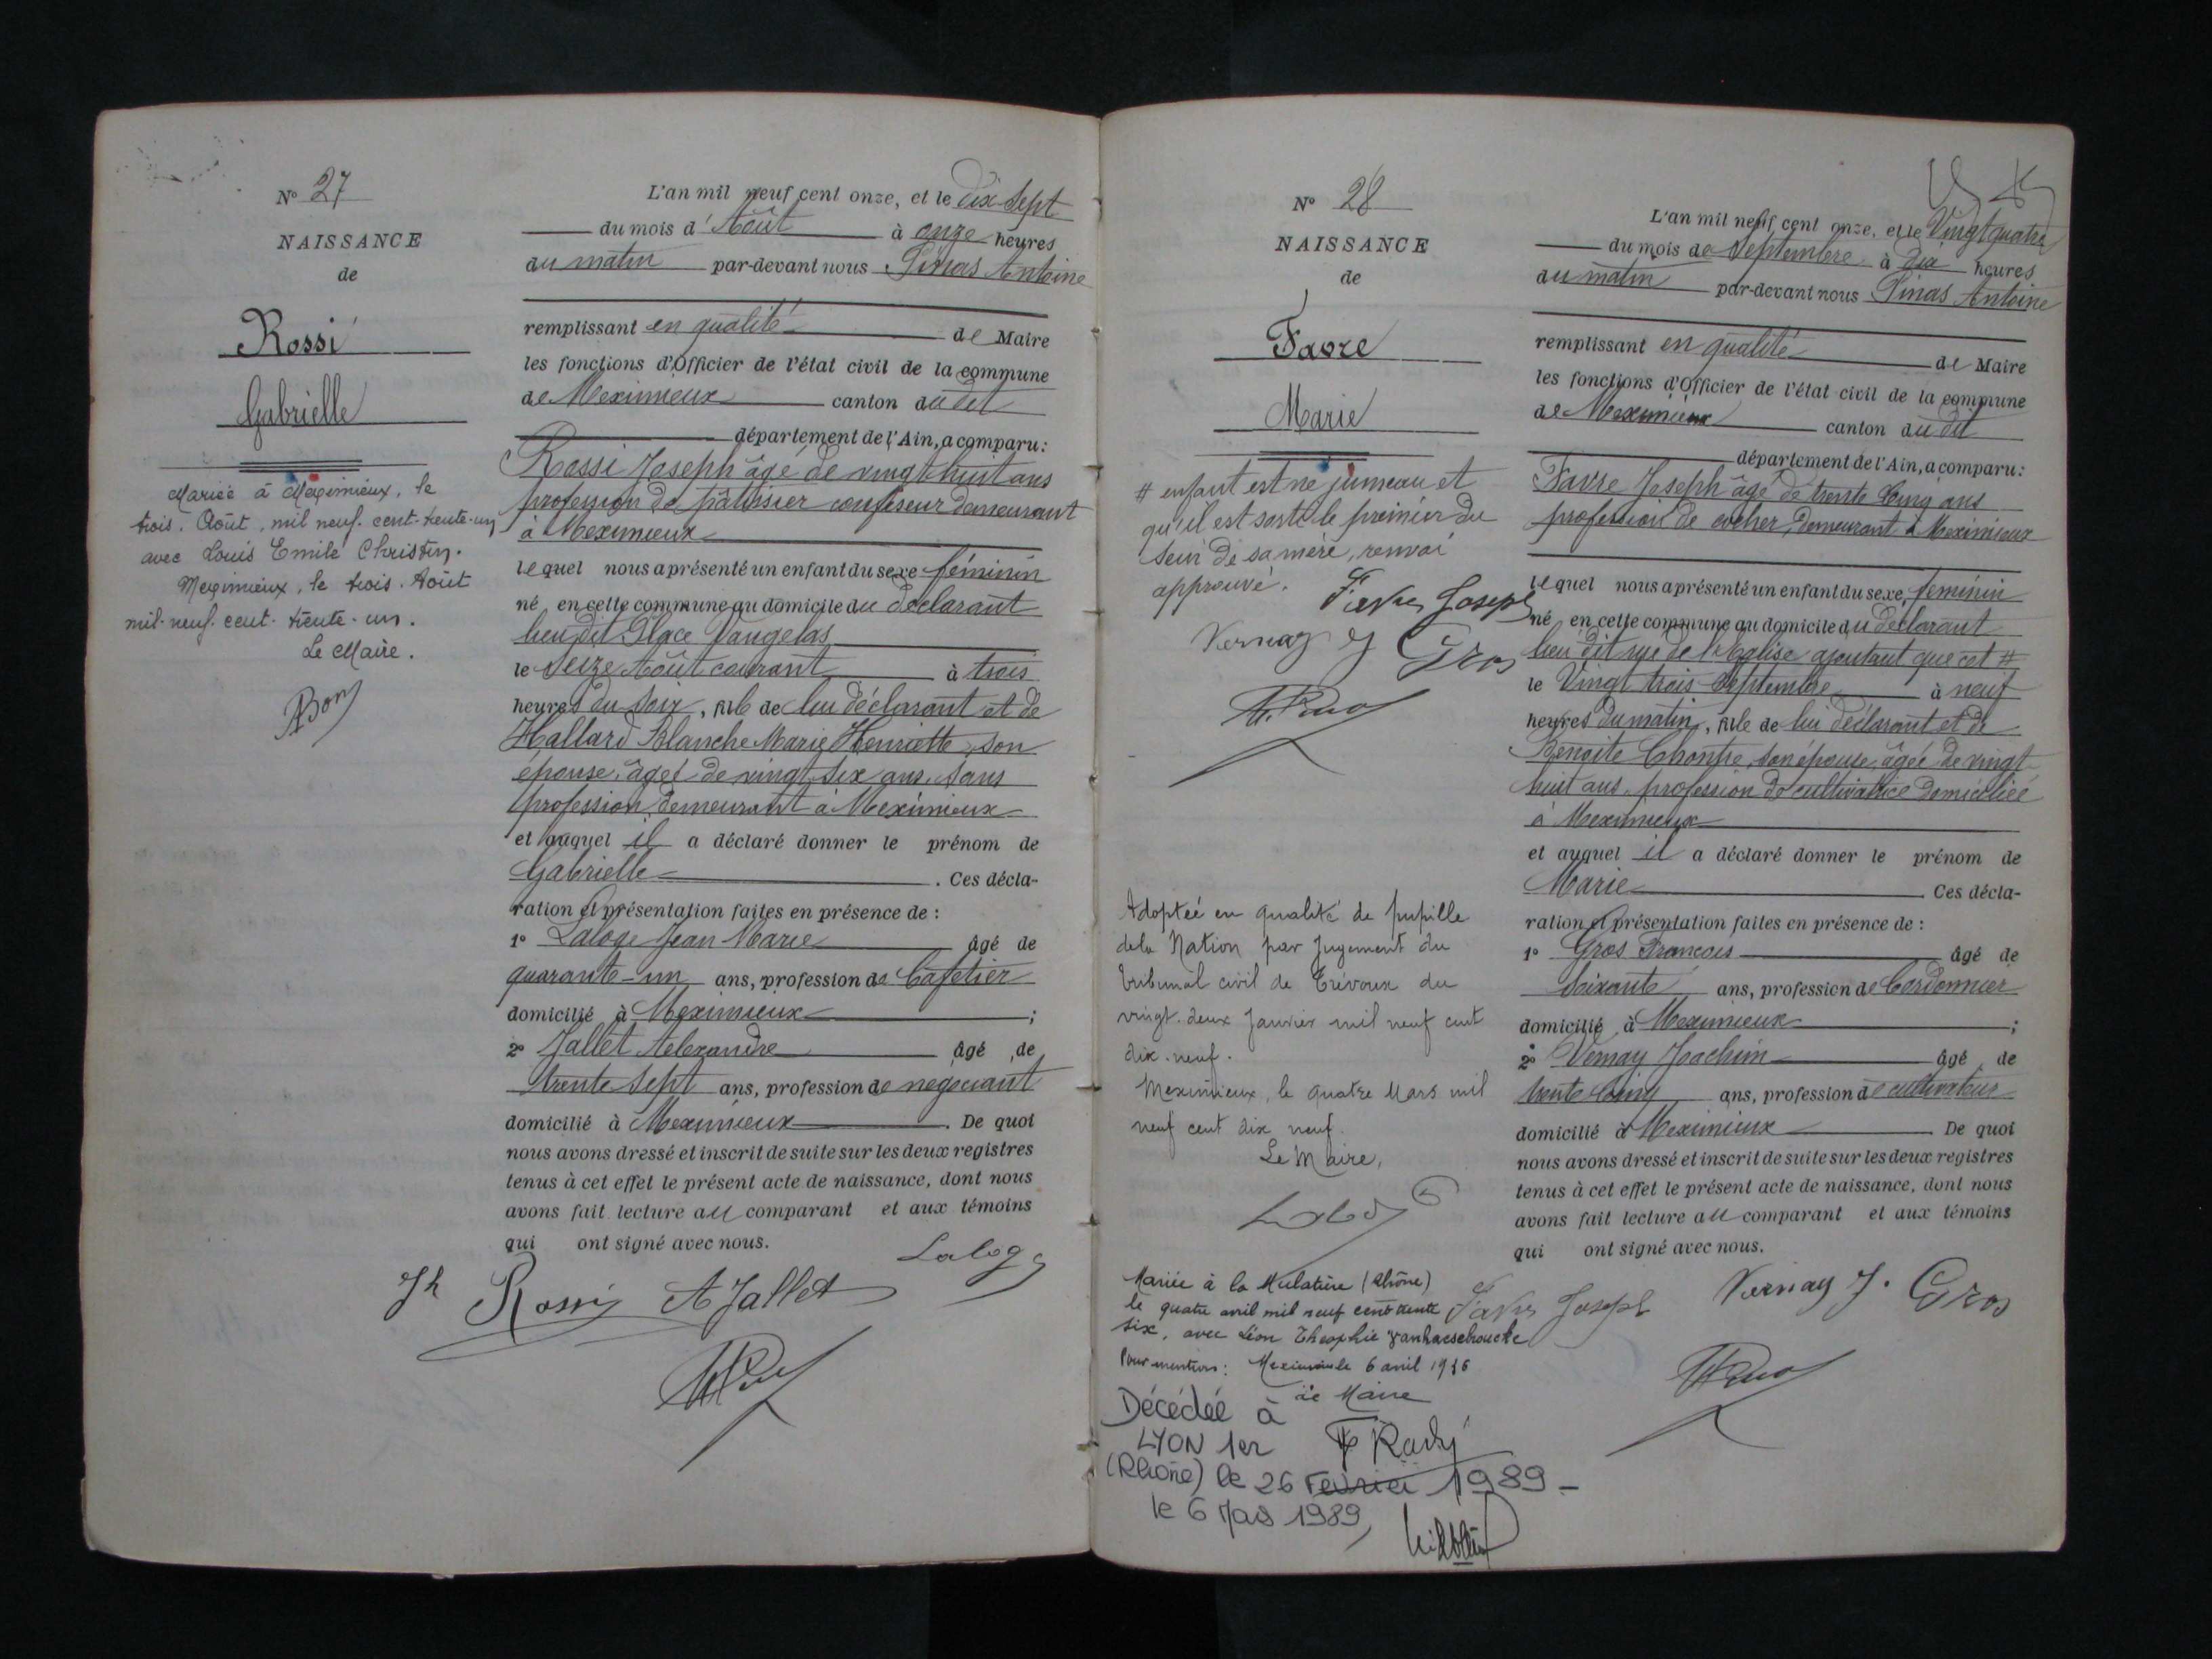 N° 27
NAISSANCE
de
Rossi
Gabrielle
Mariée à Meximieux, le
trois. Août, mil neuf. cent-trente-un
avec Louis Emile Christin.
Meximieux, le trois. Août
mil-neuf. cent. trente-un.
Le Maire.
L'an mil neuf cent onze, et le dix-sept
du mois d'Août à onze heures
du matin par-devant nous Pinas Antoine
remplissant en qualité de Maire
les fonctions d'Officier de l'état civil de la commune
de Meximieux canton dudit
département de l'Ain, a comparu:
Rossi Joseph âgé de vingt-huit ans
profession de pâtissier confiseur demeurant
à Meximieux
lequel nous a présenté un enfant du sexe féminin
né en cette commune au domicile du déclarant
lieu dit Place Vaugelas
le seize Août courant à trois
heures du soir, fille de lui déclarant et de
Hallard Blanche Marie Henriette, son
épouse, âgée de vingt-six ans, sans
profession, demeurant à Meximieux
et auquel il a déclaré donner le prénom de
Gabrielle . Ces décla-
ration et présentation faites en présence de :
1° Laloge Jean Marie âgé de
quarante-un ans, profession de Cafetier
domicilié à Meximieux ;
2° Jallet Alexandre âgé de
trente sept ans, profession de négociant
domicilié à Meximieux . De quoi
nous avons dressé et inscrit de suite sur les deux registres
tenus à cet effet le présent acte de naissance, dont nous
avons fait lecture au comparant et aux témoins
qui ont signé avec nous.
Laloge
Jh Rossi A Jallet
N° 28
NAISSANCE
de
Favre
Marie
# enfant est né jumeau et
qu'il est sorti le premier du
sein de sa mère, renvoi
approuvé.
Favre Joseph
Vernay J Gros
Adoptée en qualité de pupille
de la Nation par jugement du
tribunal civil de Trévoux du
vingt-deux Janvier mil neuf cent
dix-neuf.
Meximieux, le quatre Mars mil
neuf cent dix neuf.
Le Maire,
Mariée à la Mulatière (Rhône)
le quatre avril mil neuf cent trente
six, avec Léon Théophile Vanhaesebroucke
Pour mention : Meximieux le 6 avril 1936
Le Maire
Décédée à
LYON 1er
(Rhône) le 26 Février 1989 -
le 6 Mars 1989,
L'an mil neuf cent onze, et le Vingt quatre
du mois de Septembre à dix heures
du matin par-devant nous Pinas Antoine
remplissant en qualité de Maire
les fonctions d'Officier de l'état civil de la commune
de Meximieux canton dudit
département de l'Ain, a comparu:
Favre Joseph âgé de trente cinq ans
profession de cocher, demeurant à Meximieux
lequel nous a présenté un enfant du sexe féminin
né en cette commune au domicile du déclarant
lieu dit rue de l'Eglise ajoutant que cet #
le Vingt trois Septembre à neuf
heures du matin, fille de lui déclarant et de
Benoite son épouse, âgée de vingt-
huit ans, profession de cultivatrice domiciliée
à Meximieux
et auquel il a déclaré donner le prénom de
Marie . Ces décla-
ration et présentation faites en présence de :
1° Gros François âgé de
Soixante ans, profession de Cordonnier
domicilié à Meximieux ;
2° Vernay Joachim âgé de
trente cinq ans, profession de cultivateur
domicilié à Meximieux De quoi
nous avons dressé et inscrit de suite sur les deux registres
tenus à cet effet le présent acte de naissance, dont nous
avons fait lecture au comparant et aux témoins
qui ont signé avec nous.
Favre Joseph Vernay J. Gros